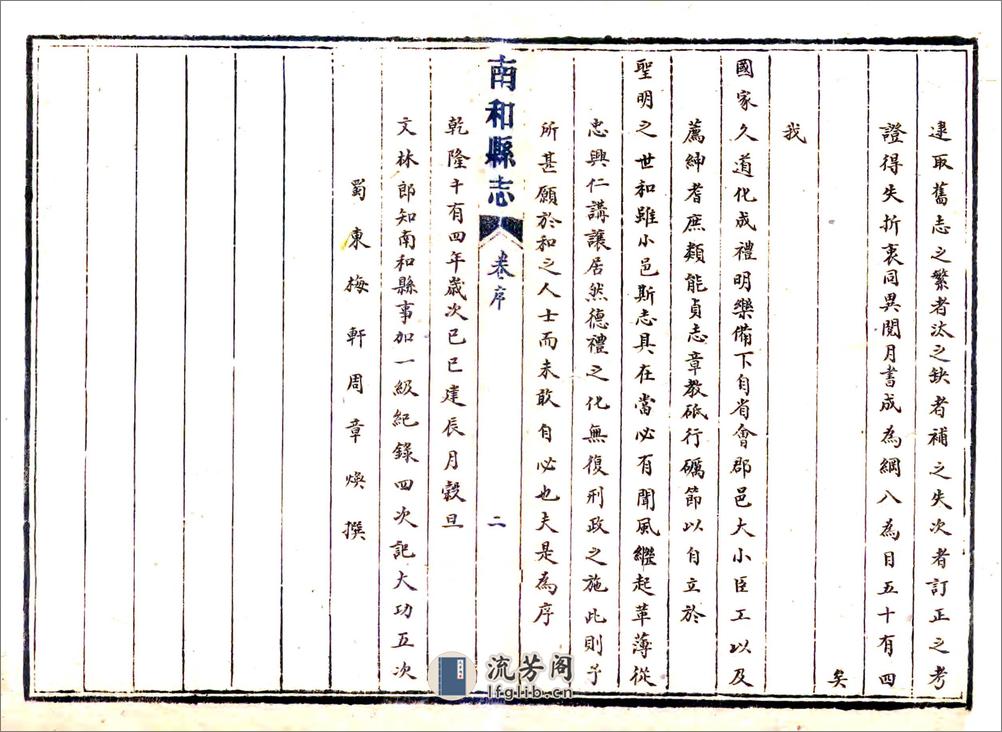 逮取舊志之繁者汰之缺者補之失次者訂正之考
證得失折衷同異閱月書成為綱八為目五十有四
矣
我
國家久道化成禮明樂備下自省會郡邑大小臣工以及
薦紳耆庶類能貞志章教砥行礪節以自立於
聖明之世和雖小邑斯志具在當必有聞風繼起革薄從
忠興仁講讓居然德禮之化無復刑政之施此則予
所甚願於和之人士而未敢自必也夫是為序
南和縣志 卷序 二
乾隆十有四年歲次己巳建辰月穀旦
文林郎知南和縣事加一級紀錄四次記大功五次
蜀東梅軒周章煥撰
流芳阁
lfglib.cn